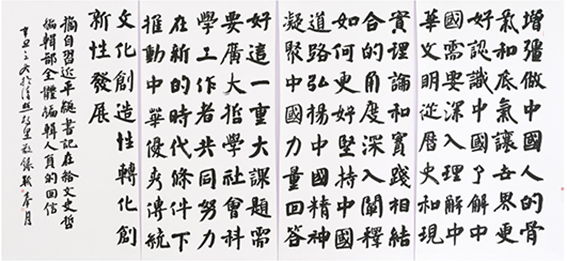 增彊做中國人的骨
氣和底氣讓世界更
好認識中國了解中
國需要深入理解中
華文明從曆史和現
實理論和實踐相結
合的角度深入闡釋
如何更好堅持中國
道路弘揚中國精神
凝聚中國力量回答
好這一重大課題需
要廣大哲學社會科
學工作者共同努力
在新的時代條件下
推動中華優秀傳統
文化創造性轉化創
新性發展
摘自習近平總書記在給文史哲
編輯部全體編輯人員的回信
辛丑